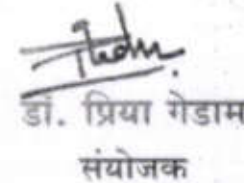 डॉ. प्रिया गेडाम
संयोजक